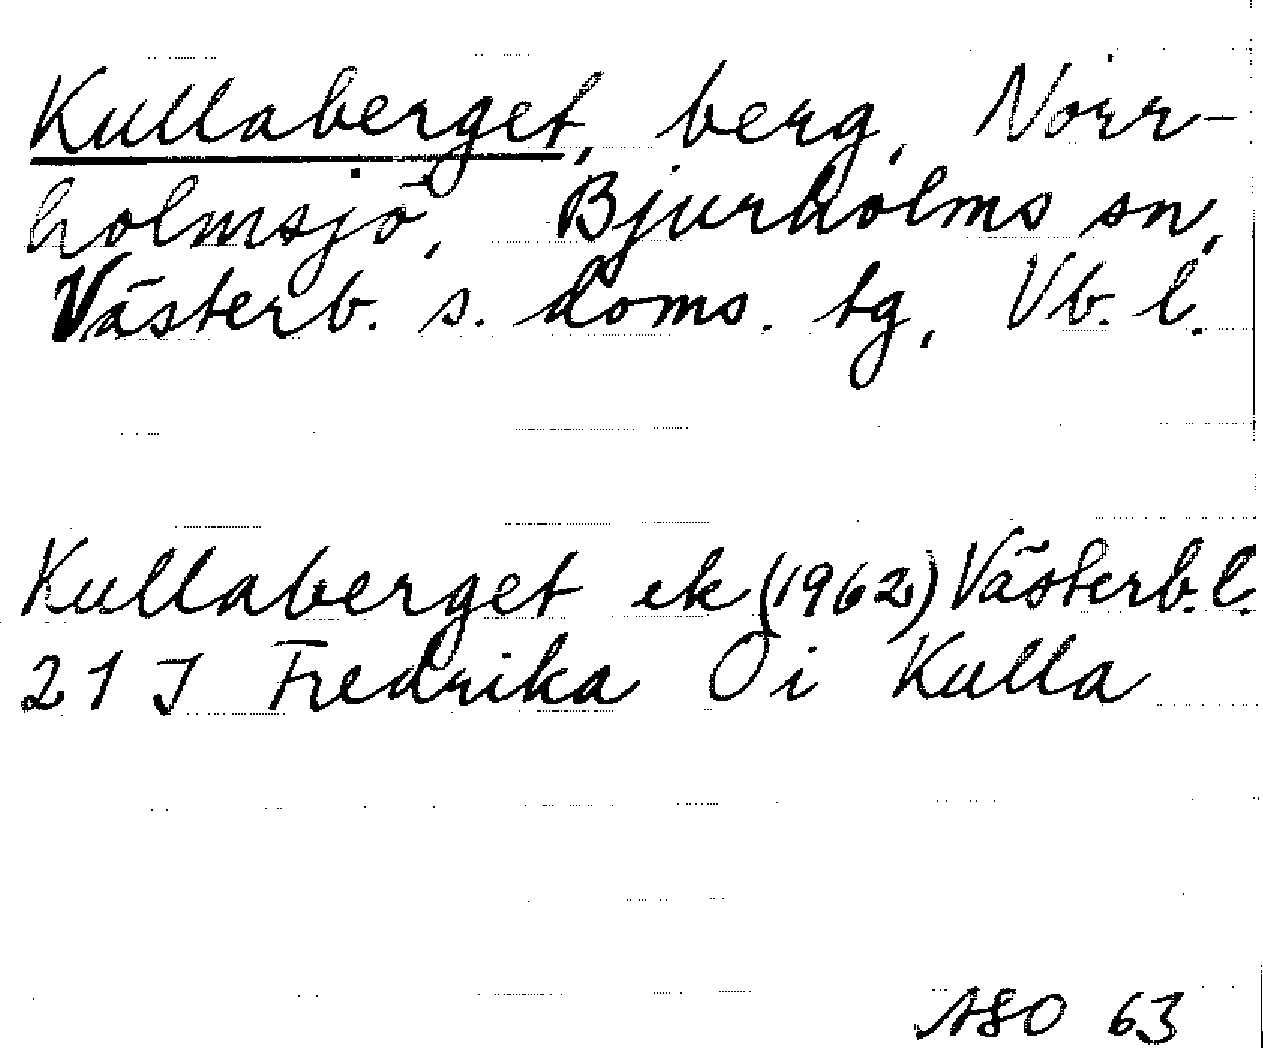 Kullaberget, berg, Norr-
holmsjö, Bjurholms sn,
Västerb. s. doms. tg, Vb. l.
Kullaberget ek (1962) Västerb. l.
21 J Fredrika Ö i Kulla
ASO 63